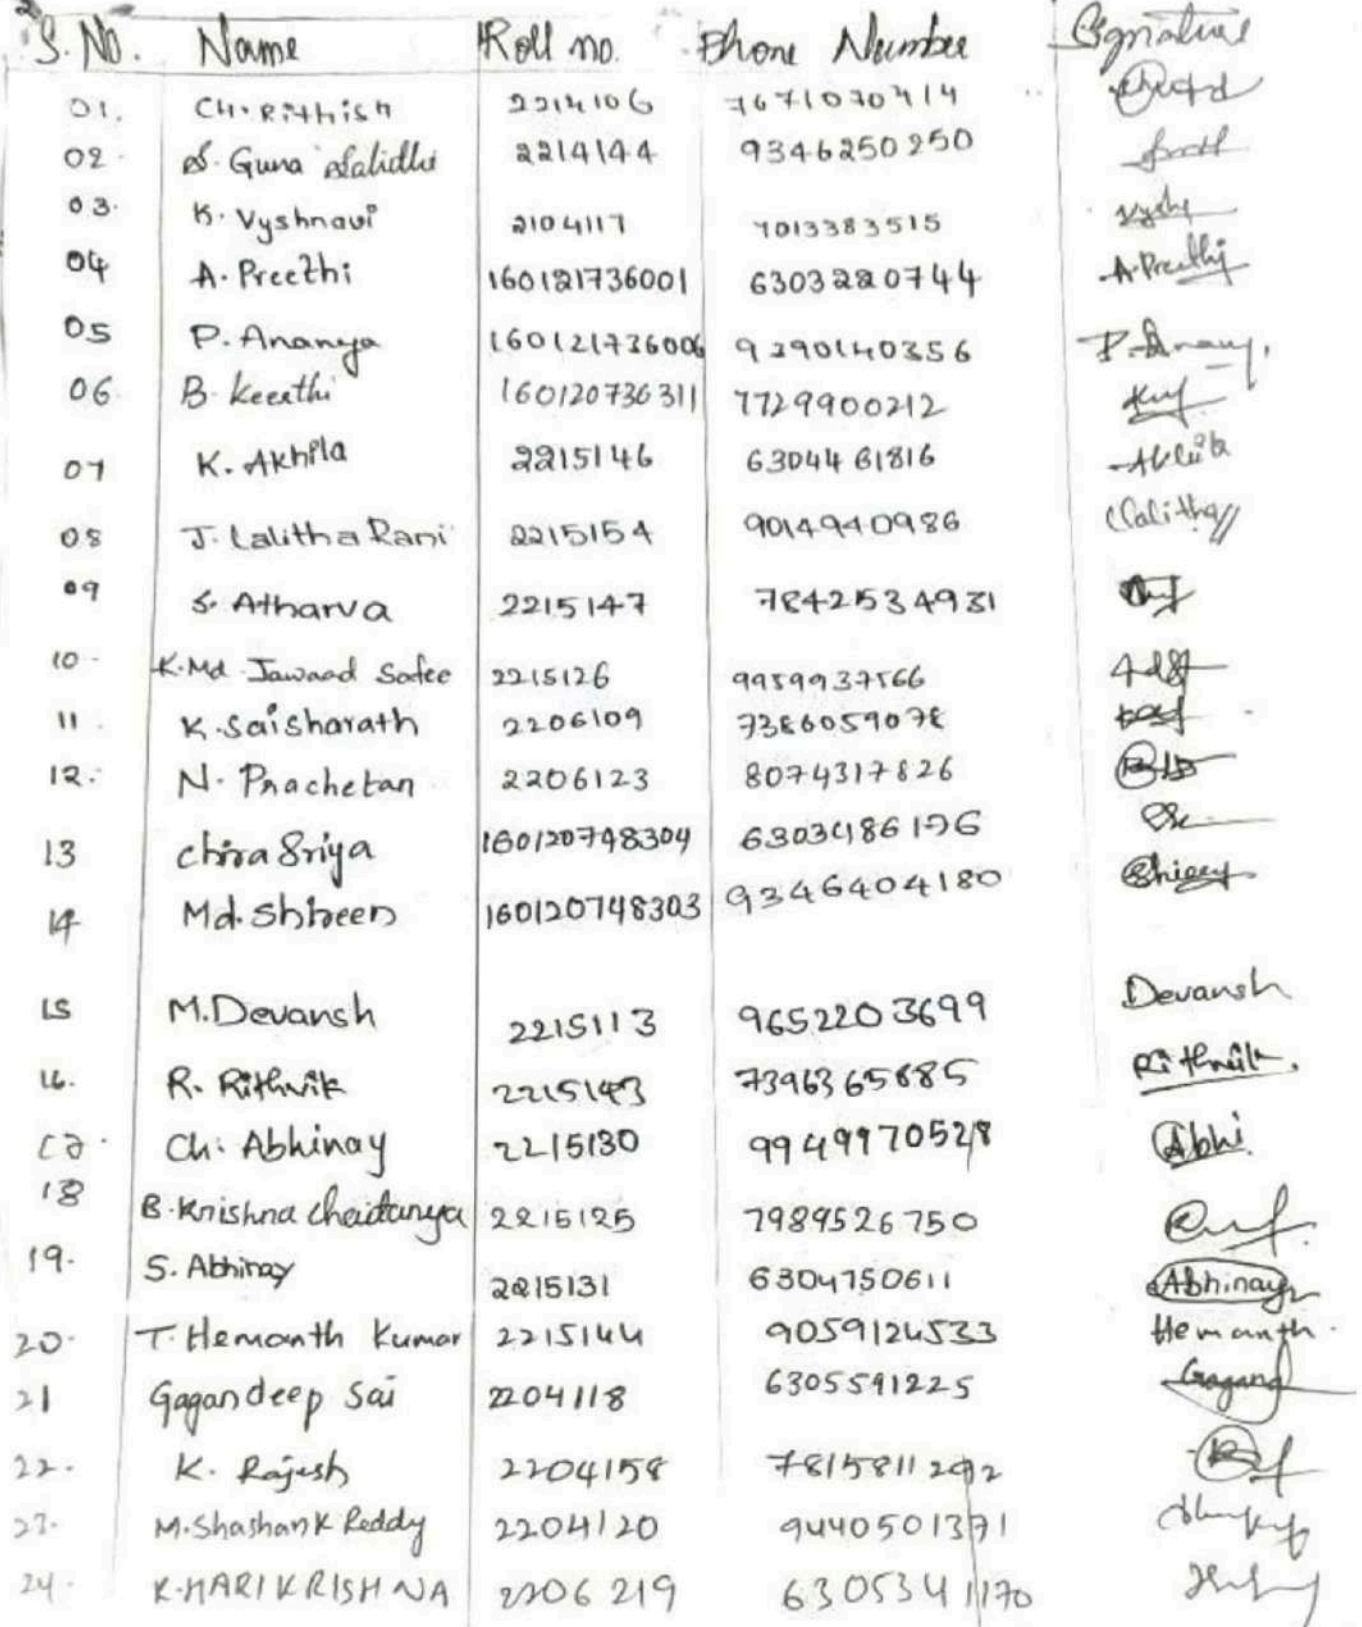 S. No. Name Roll no. Phone Number Signature
01. CH. Rithish 2214106 7671070414
02. S. Guna 2214144 9346250250
03. K. Vyshnavi 2104117 7013383515 Vysh
04 A. Preethi 160121736001 6303220744 A. Preethi
05 P. Ananya 160121736006 9390140356 P. Anany.
06. B. Keerthi 160120736311 7729900212
07 K. Akhila 2215146 6304461816 Akhila
08 J. Lalitha Rani 2215154 9014940986 Lalitha
09 S. Atharva 2215147 7842534931
10. K. Md. Jawaad Safee 2215126 9959937566
11. K. Saisharath 2206109 7386059078
12. N. Prachetan 2206123 8074317826
13 Chira Sriya 160120748304
14 Md. 160120748303 9346404180
15 M. Devansh 2215113 9652203699 Devansh
16. R. Rithvik 2215143 7396365885 Rithvik.
17. Ch. Abhinay 2215130 9949970528 Abhi
18 B. Krishna Chaitanya 2215125 7989526750
19. S. Abhinay 2215131 6304750611 Abhinay
20. T. Hemanth Kumar 2215144 9059124533 Hemanth.
21 Gagandeep Sai 2204118 6305591225 Gagand
22. K. Rajesh 2204158 7815811292
23. M. Shashank Reddy 2204120 9440501371
24. K. HARI KRISHNA 2206219 6305341170